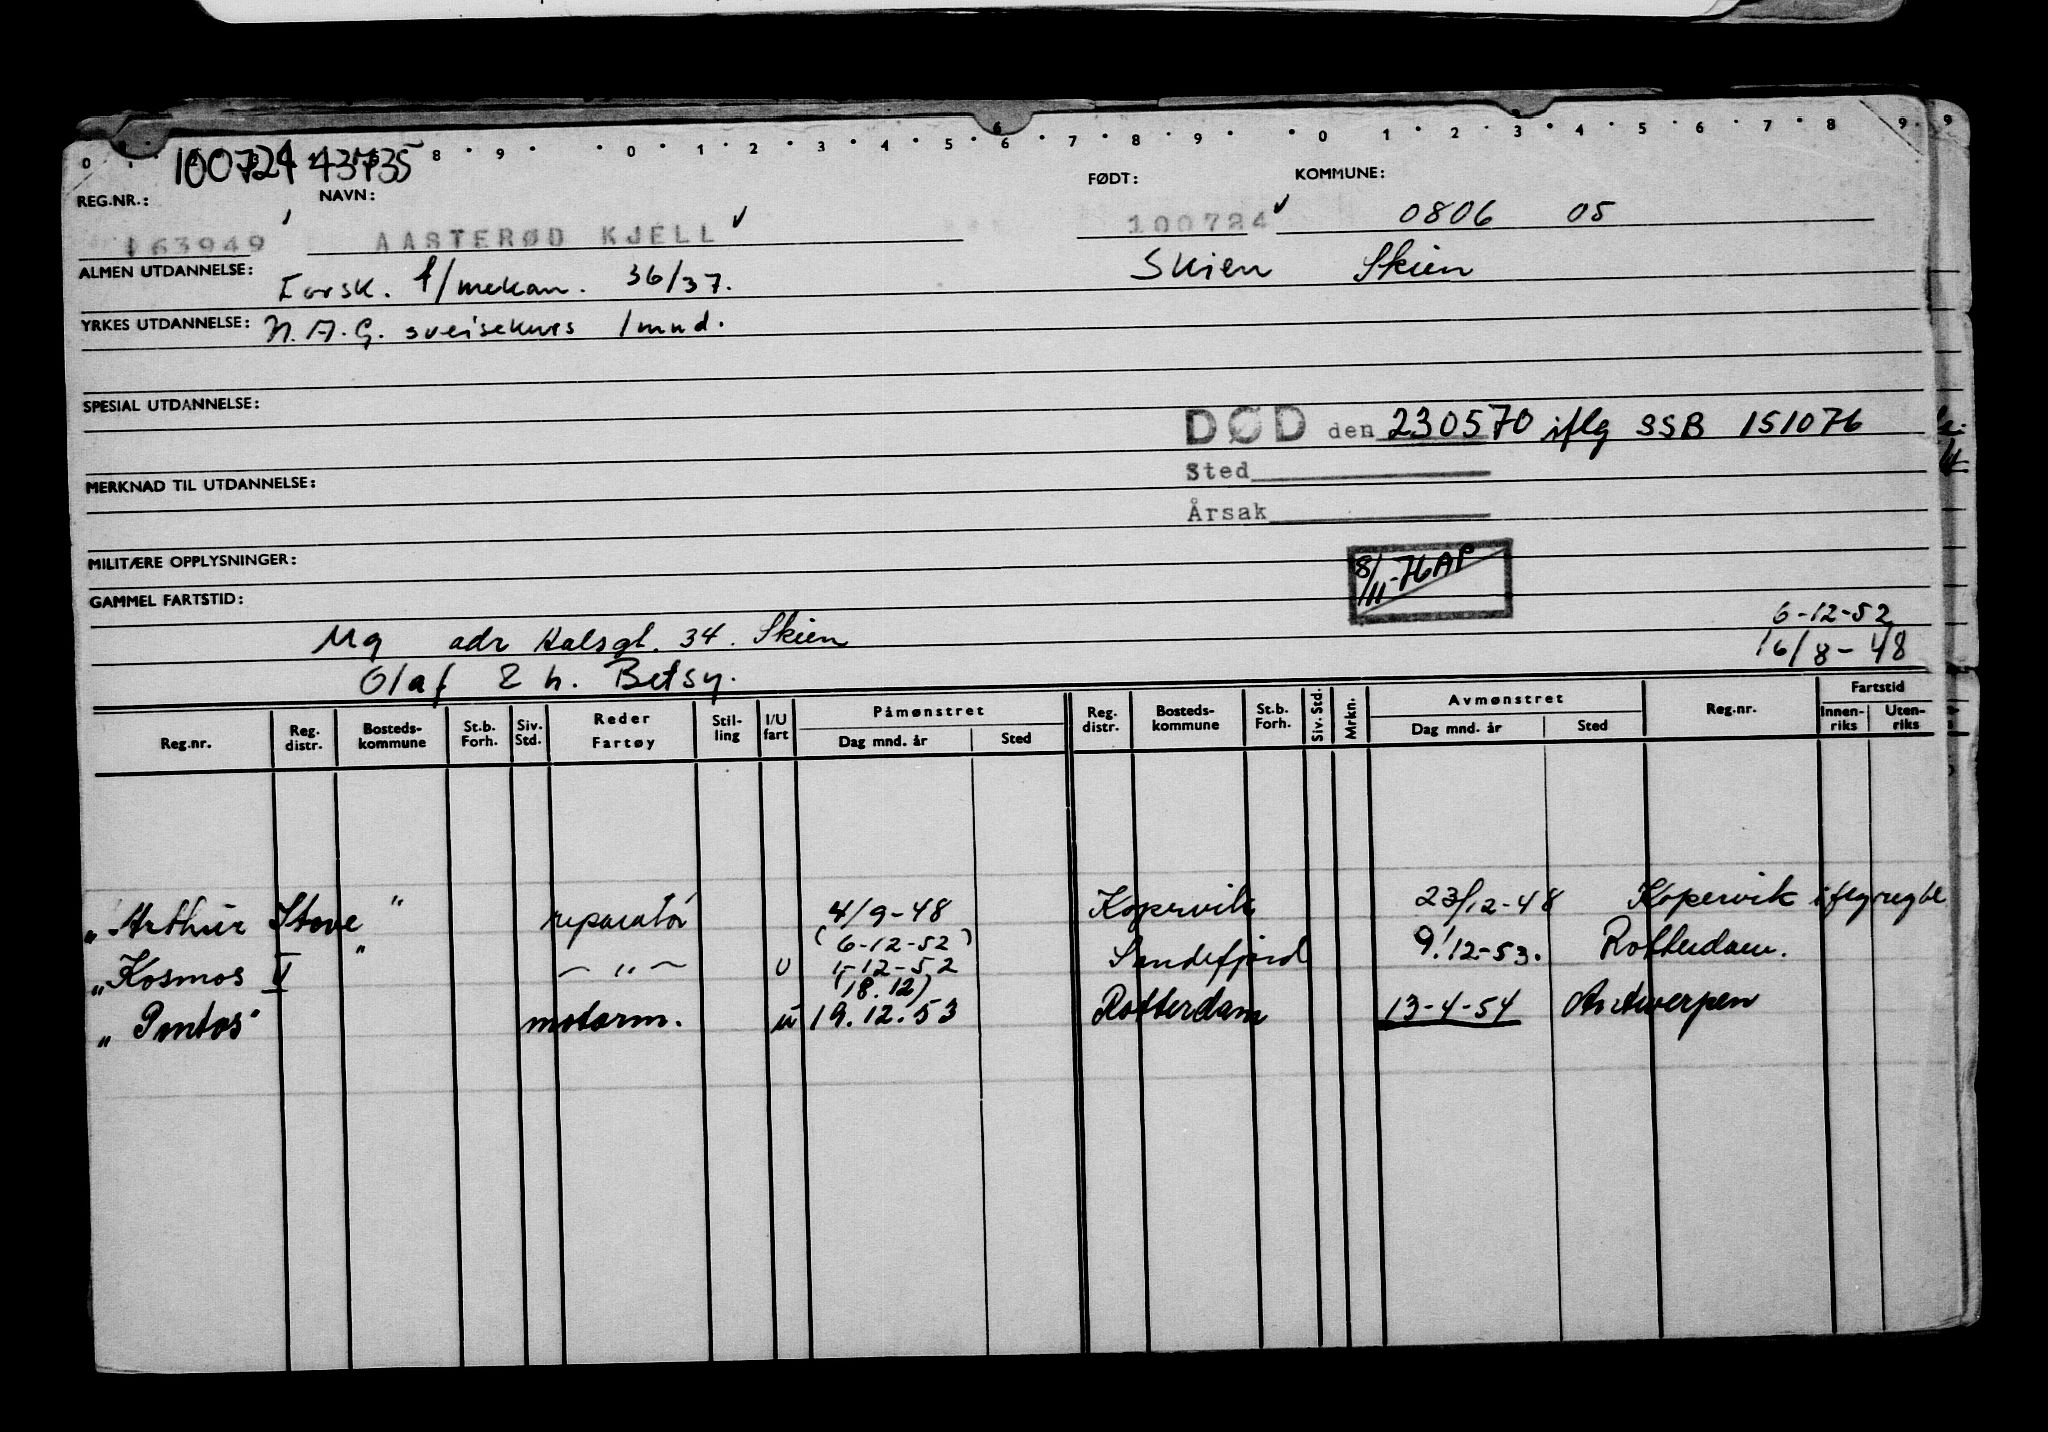 0 1 8 9 0 1 2 3 4 5 6 7 8 9 0 1 2 3 4 5 6 7 8 9 9
100724 43735
REG.NR.: NAVN: FØDT: KOMMUNE:
163949 AASTERØD KJELL 100724 0806 05
ALMEN UTDANNELSE: Forsk. f/mekan. 36/37. Skien Skien
YRKES UTDANNELSE: N.A.G. sveisekurs 1 mnd.
SPESIAL UTDANNELSE:
DØD den 230570 iflg SSB 151076
Sted
MERKNAD TIL UTDANNELSE:
Årsak
MILITÆRE OPPLYSNINGER:
8/11-76 AP
GAMMEL FARTSTID:
6-12-52
Ug adr Halsgt. 34. Skien
16/8-48
Olaf & h. Betsy.
Reg.nr. Reg. distr. Bosteds-kommune St.b. Forh. Siv. Std. Reder Fartøy Stil-ling I/U fart Påmønstret Dag mnd. år Sted Reg. distr. Bosteds-kommune St.b. Forh. Siv. Std. Mrkn. Avmønstret Dag mnd. år Sted Reg.nr. Fartstid Innen-riks Uten-riks
" Arthur Stove " reparatør 4/9-48 Kopervik 23/12-48 Kopervik
(6-12-52)
" Kosmos V " — " — U 1-12-52 Sandefjord 9/12-53. Rotterdam.
(18.12)
" Pontos" motorm. u 19.12.53 Rotterdam 13-4-54 Antwerpen